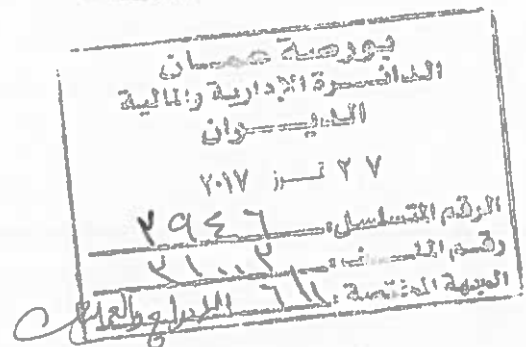 بورصة عمان
الدائرة الإدارية والمالية
الديوان
٢٧ تموز ٢٠١٧
الرقم المتسلسل: ٢٩٤٦
رقم الملف:
الجهة المختصة: